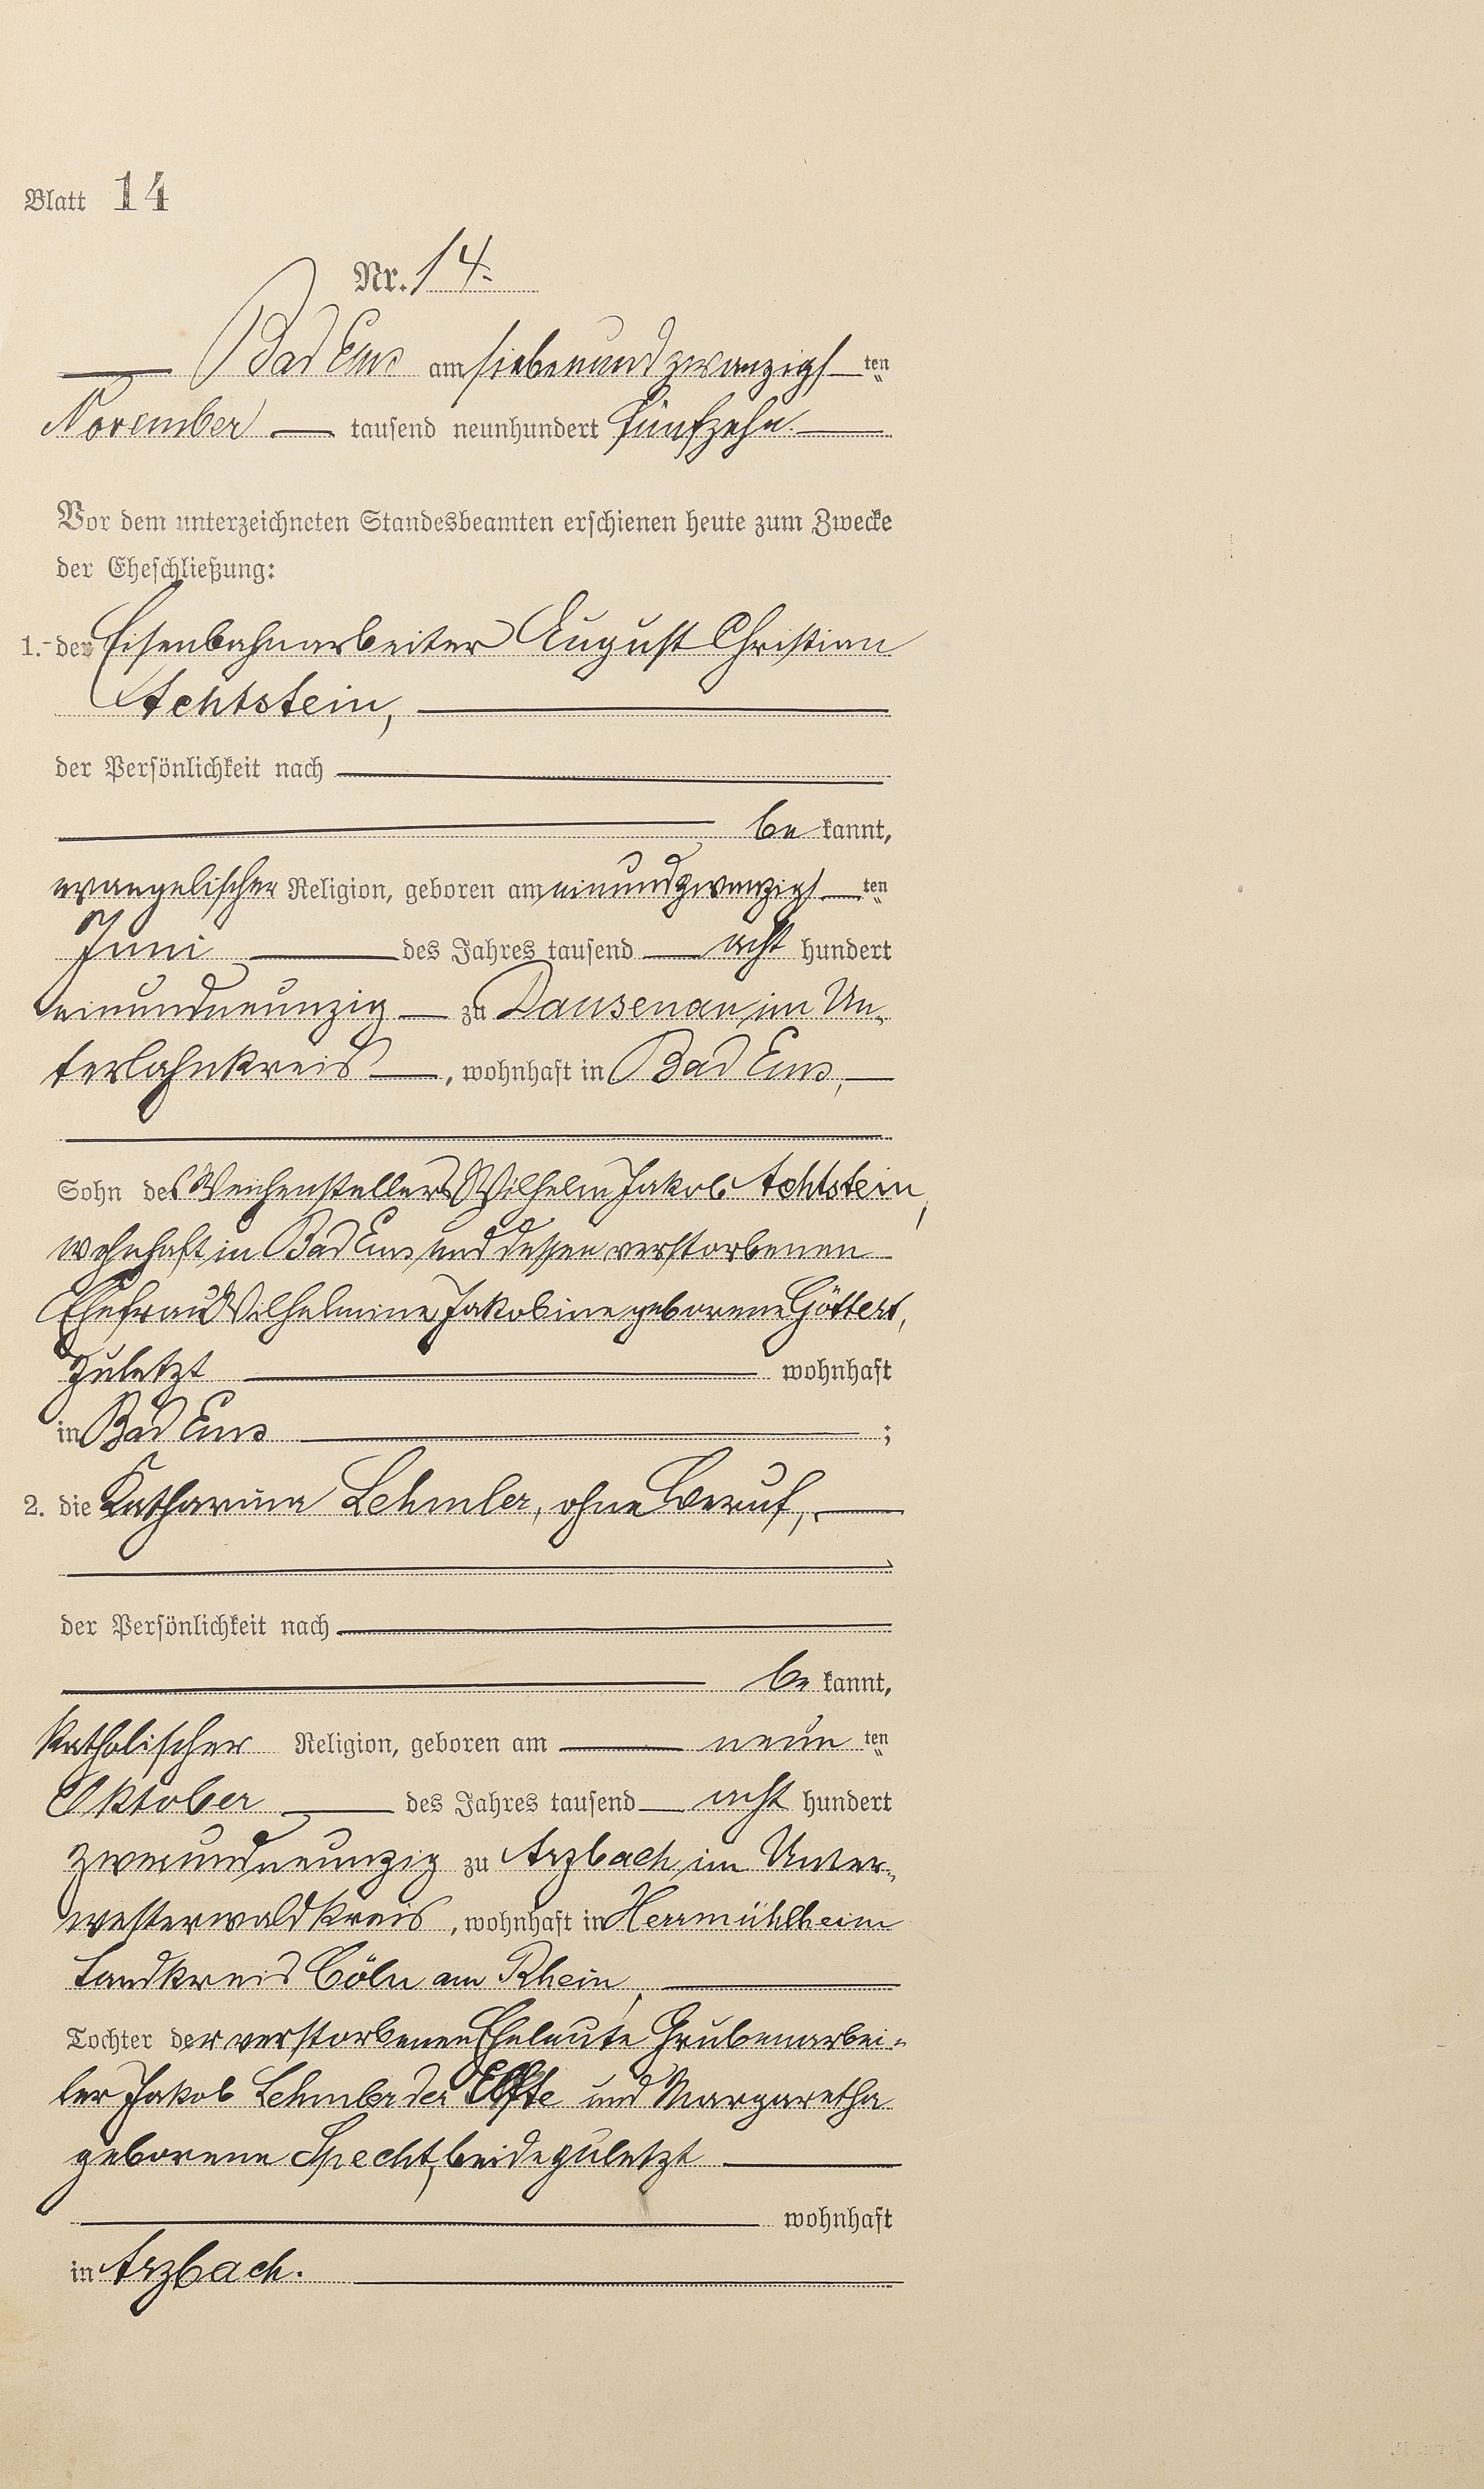 Blatt 14
Nr. 14.
Bad Ems am siebenundzwanzigsten
November tausend neunhundert fünfzehn.
Vor dem unterzeichneten Standesbeamten erschienen heute zum Zwecke
der Eheschließung:
1. der Eisenbahnarbeiter August Christian
Achtstein,
der Persönlichkeit nach
be kannt,
evangelischer Religion, geboren am einundzwanzigsten
Juni des Jahres tausend acht hundert
einundneunzig zu Dausenau im Un-
terlahnkreis, wohnhaft in Bad Ems,
Sohn des Weichenstellers Wilhelm Jakob Achtstein,
wohnhaft in Bad Ems und dessen verstorbenen
Ehefrau Wilhelmine Jakobine geborene Göttert,
zuletzt wohnhaft
in Bad Ems ;
2. die Katharina Lehmler, ohne Beruf,
der Persönlichkeit nach
be kannt,
katholischer Religion, geboren am neun ten
Oktober des Jahres tausend acht hundert
zweiundneunzig zu Arzbach im Unter-
westerwaldkreis, wohnhaft in Hermühlheim
Landkreis Cöln am Rhein,
Tochter der verstorbenen Eheleute Grubenarbei-
ter Jakob Lehmler der Elfte und Margaretha
geborene Specht, beide zuletzt
wohnhaft
in Arzbach.